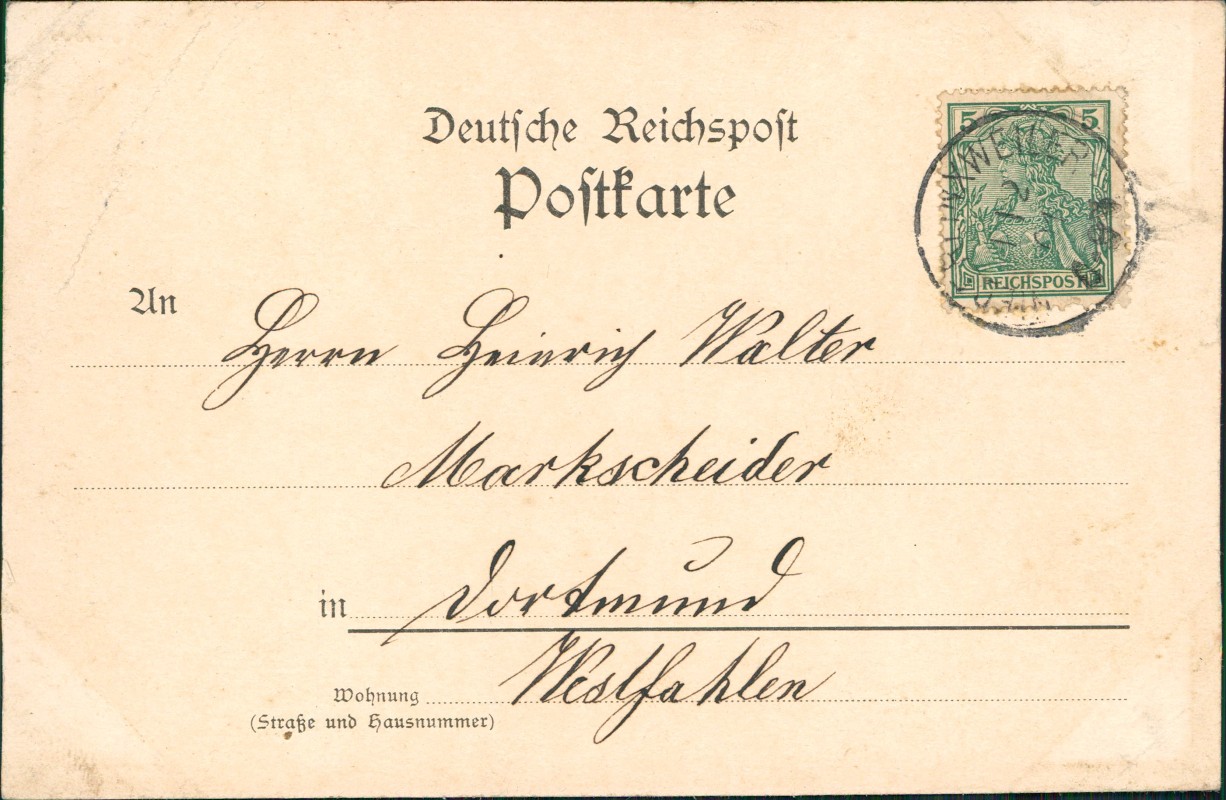 Deutsche Reichspost
Postkarte
5 5
REICHSPOST
An
Herrn Heinrich Walter
Markscheider
in Dortmund
Wohnung Westfahlen
(Straße und Hausnummer)